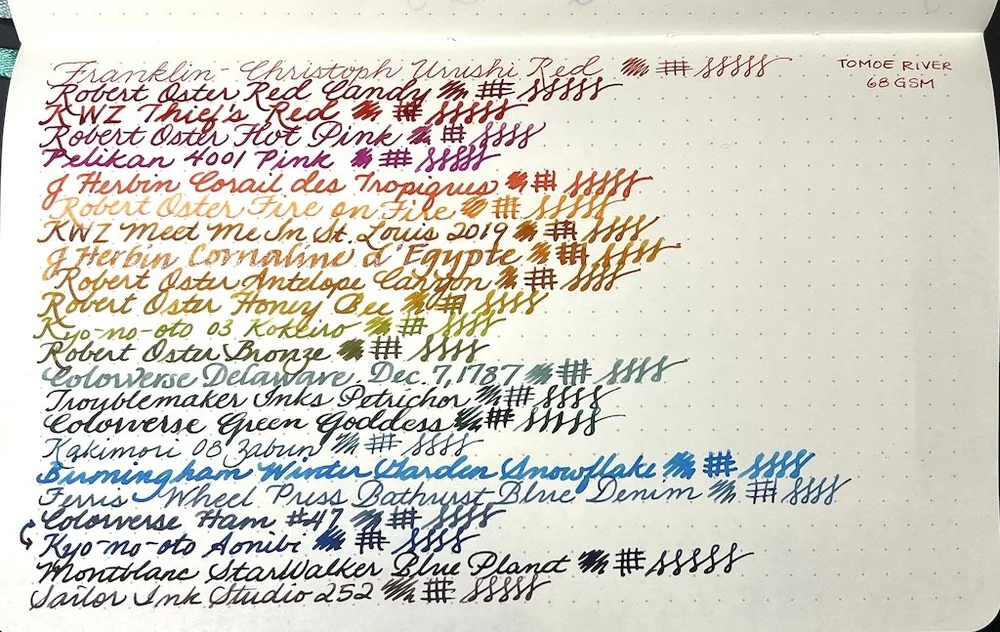 Franklin-Christoph Urushi Red
TOMOE RIVER
68 GSM
Robert Oster Red Candy
KWZ Thief's Red
Robert Oster Hot Pink
Pelikan 4001 Pink
J Herbin Corail des Tropiques
Robert Oster Fire on Fire
KWZ Meet Me In St. Louis 2019
J Herbin Cornaline d'Egypte
Robert Oster Antelope Canyon
Robert Oster Honey Bee
Kyo-no-oto 03 Kokeiro
Robert Oster Bronze
Colorverse Delaware, Dec. 7, 1787
Troublemaker Inks Petrichor
Colorverse Green Goddess
Kakimori 08 Zabun
Birmingham Winter Garden Snowflake
Ferris Wheel Press Bathurst Blue Denim
Colorverse Ham #47
Kyo-no-oto Aonibi
Montblanc StarWalker Blue Planet
Sailor Ink Studio 252